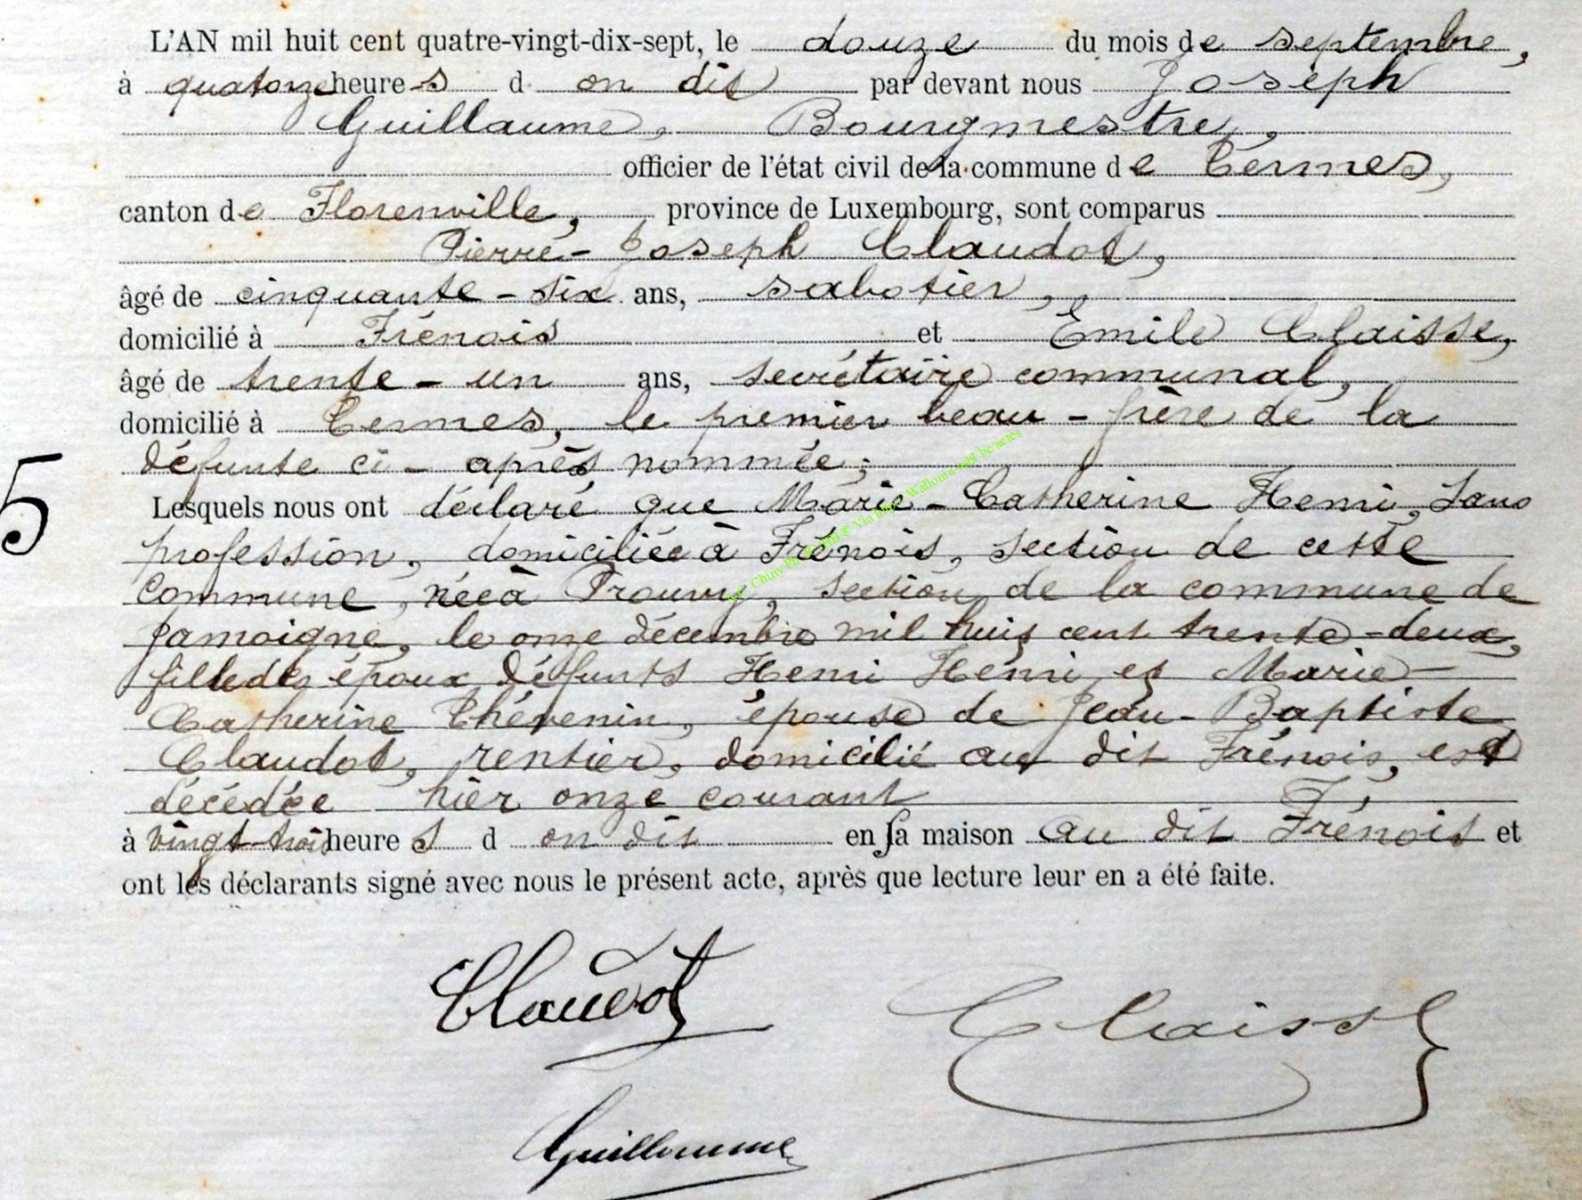 L'AN mil huit cent quatre-vingt-dix-sept, le douze du mois de septembre,
à quatorze heures d on dit par devant nous Joseph
Guillaume, Bourgmestre,
officier de l'état civil de la commune de Termes,
canton de Florenville, province de Luxembourg, sont comparus
Pierre-Joseph Claudot,
âgé de cinquante-six ans, sabotier,
domicilié à Frénois et Emile Claisse,
âgé de trente-un ans, secrétaire communal,
domicilié à Termes, le premier beau-frère de la
défunte ci-après nommée;
5
Lesquels nous ont déclaré que Marie-Catherine Henri, sans
profession, domiciliée à Frénois, section de cette
commune, née à Prouvy, section de la commune de
Jamoigne, le onze décembre mil huit cent trente-deux,
fille des époux défunts Henri Henri et Marie-
Catherine Thévenin, épouse de Jean-Baptiste
Claudot, rentier, domicilié au dit Frénois, est
décédée hier onze courant
à vingt-trois heures d on dit en sa maison au dit Frénois et
ont les déclarants signé avec nous le présent acte, après que lecture leur en a été faite.
Claudot
Claisse
Guillaume